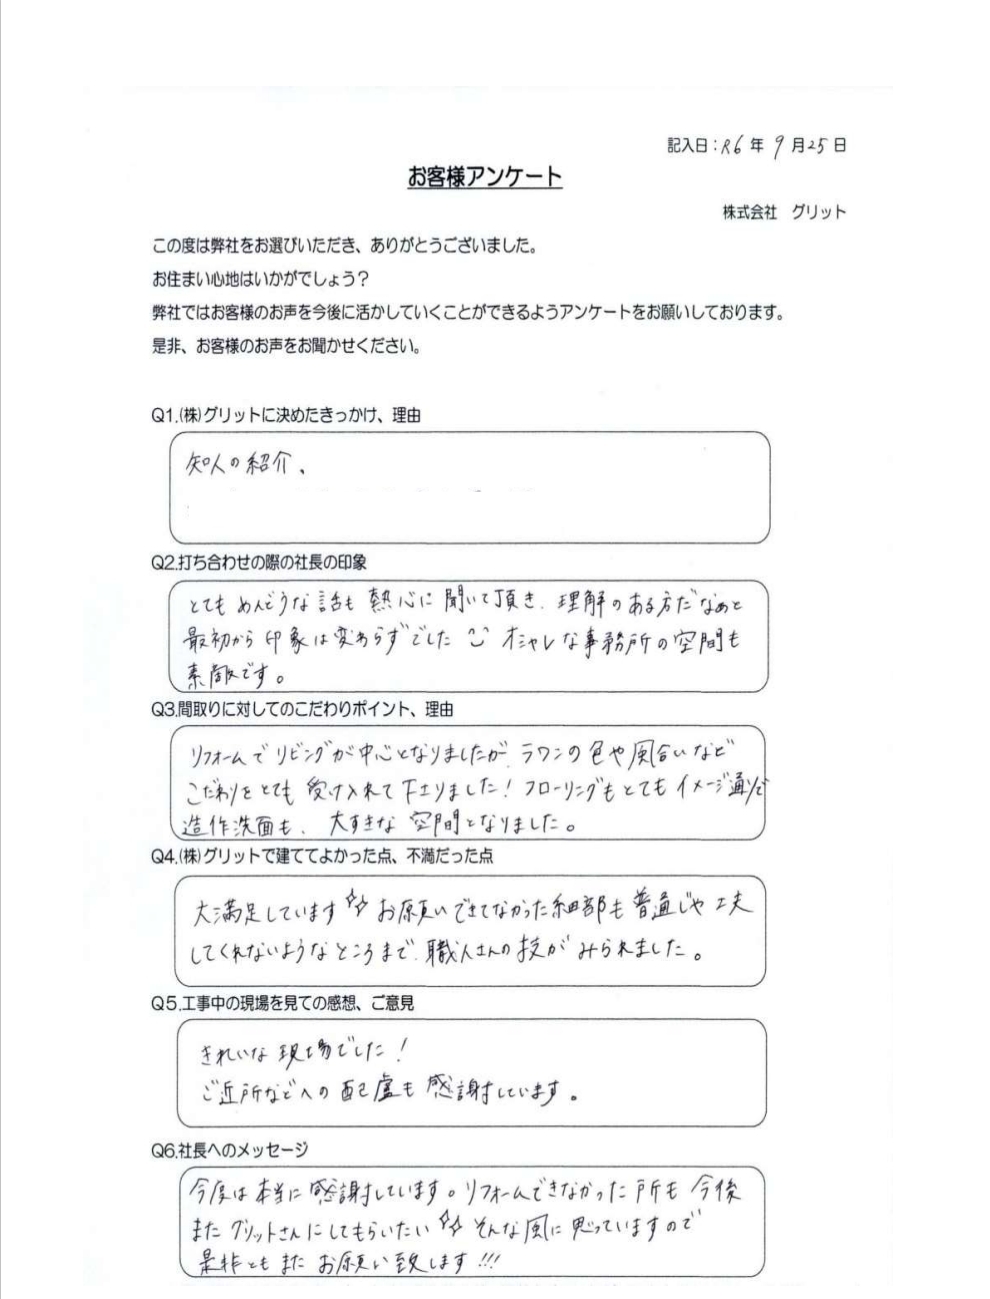 記入日:R6年9月25日
お客様アンケート
株式会社 グリット
この度は弊社をお選びいただき、ありがとうございました。
お住まい心地はいかがでしょう?
弊社ではお客様のお声を今後に活かしていくことができるようアンケートをお願いしております。
是非、お客様のお声をお聞かせください。
Q1.(株)グリットに決めたきっかけ、理由
知人の紹介、
Q2.打ち合わせの際の社長の印象
とても めんどうな話も 熱心に 聞いて頂き、理解のある方だなぁと
最初から 印象は変わらずでした オシャレな事務所の空間も
素敵です。
Q3.間取りに対してのこだわりポイント、理由
リフォームで リビングが中心となりましたが、ラワンの色や風合いなど
こだわりをとても 受け入れて下さりました!フローリングもとてもイメージ通りで
造作洗面も、大すきな 空間となりました。
Q4.(株)グリットで建ててよかった点、不満だった点
大満足しています✨ お願いできてなかった細部も普通じゃ工夫
してくれないようなところまで、職人さんの技が みられました。
Q5.工事中の現場を見ての感想、ご意見
きれいな 現場でした!
ご近所などへの配慮も感謝しています。
Q6.社長へのメッセージ
今度は本当に感謝しています。リフォームできなかった所も今後
また グリットさんにしてもらいたい✨ そんな風に思っていますので
是非ともまた お願い致します!!!